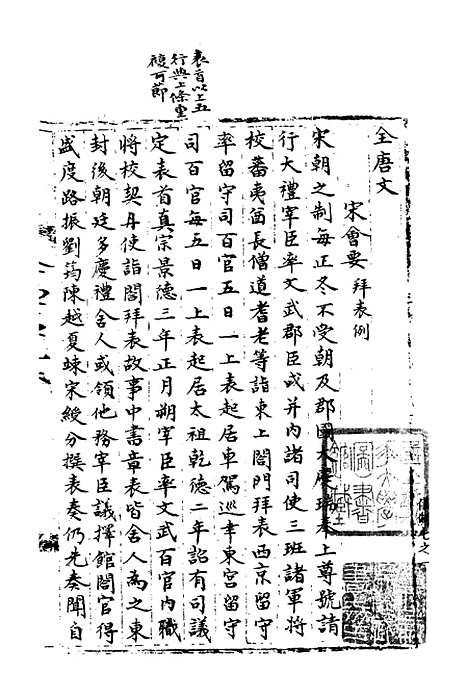 表首以上五
行與上條重
複可節
全唐文
宋會要 拜表例
宋朝之制每正冬不受朝及郡國大慶瑞奉上尊號請
行大禮宰臣率文武郡臣或并內諸司使三班諸軍將
校蕃夷酋長僧道耆老等詣東上閤門拜表西京留守
率留守司百官五日一上表起居車駕巡幸東宮留守
司百官每五日一上表起居太祖乾德二年詔有司議
定表首真宗景德三年正月朔宰臣率文武百官內職
將校契丹使詣閤拜表故事中書章表皆舍人為之東
封後朝廷多慶禮舍人或領他務宰臣議擇館閤官得
盛度路振劉筠陳越夏竦宋綬分撰表奏仍先奏聞自